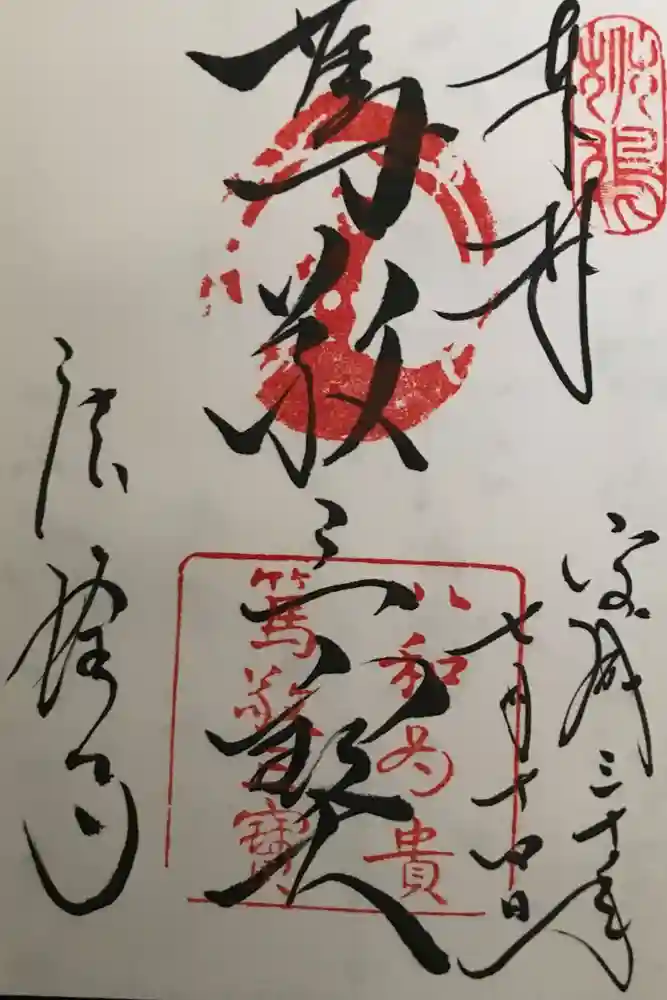 奉拝
平成三十年
七月十四日
以和為貴
篤敬三寶
篤敬三寶
法隆寺